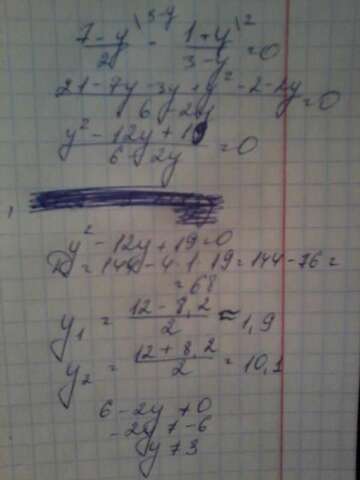 7-y \3-y / 2 - 1+y \2 / 3-y = 0
21-7y-3y+y²-2-2y / 6-2y = 0
y²-12y+19 / 6-2y = 0
y²-12y+19=0
D=144-4·1·19=144-76=
=68
y₁ = 12-8,2 / 2 ≈ 1,9
y₂ = 12+8,2 / 2 = 10,1
6-2y≠0
-2y≠-6
y≠3